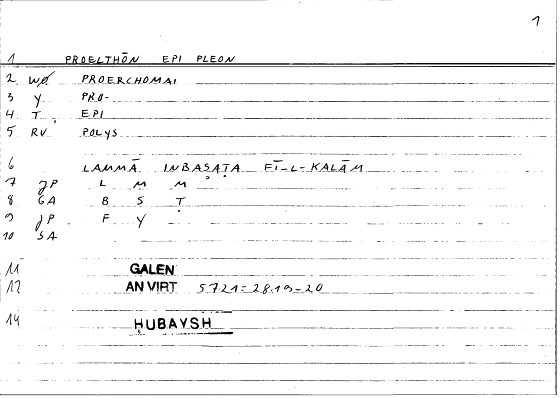 1
1 PROELTHŌN EPI PLEON
2 WØ PROERCHOMAI
3 Y PRO-
4 T. EPI
5 RV POLYS
6 LAMMĀ INBASAṬA FĪ-L-KALĀM
7 JP L M M
8 GA B S Ṭ
9 JP F Y
10 SA
11 GALEN
12 AN VIRT 5721=28.19-20
14 ḤUBAYSH